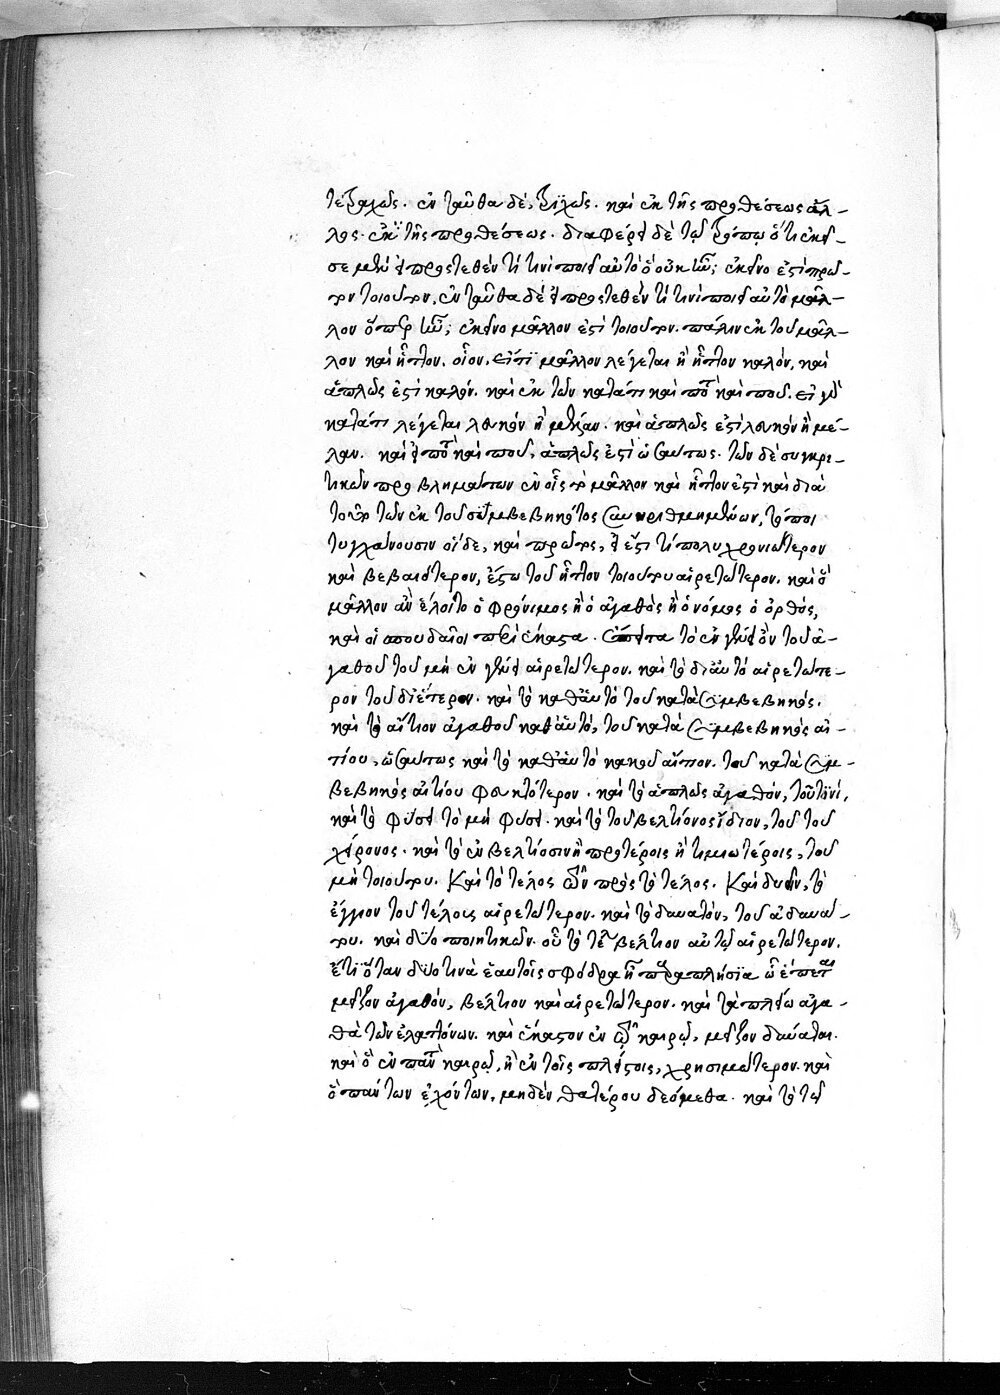 τετραχῶς. ἐνταῦθα δὲ, τριχῶς. καὶ ἐκ τῆς προσθέσεως ἀλ-
λως ἐκ τῆς προσθέσεως. διαφέρει δὲ τῷ τρόπῳ ὅτι ἐκεῖ-
σε μὲν εἰ προστεθέν τι τινὶ ποιεῖ αὐτὸ ὃ οὐκ ἦν; ἐκεῖνο ἐστὶ πρῶ-
τον τοιοῦτον, ἐνταῦθα δὲ εἰ προστεθέν τι τινὶ ποιεῖ αὐτὸ μᾶλ-
λον ὅπερ ἦν; ἐκεῖνο μᾶλλον ἐστὶ τοιοῦτον. πάλιν ἐκ τοῦ μᾶλ-
λον καὶ ἧττον. οἷον. εἴ τι μᾶλλον λέγεται ἢ ἧττον καλόν, καὶ
ἁπλῶς ἐστὶ καλόν. καὶ ἐκ τῶν κατά τι καὶ ποτὲ καὶ πού. εἰ γὰρ
κατά τι λέγεται λευκόν ἢ μέλαν. καὶ ἁπλῶς ἐστὶ λευκόν ἢ μέ-
λαν. καὶ εἰ ποτὲ καὶ πού, ἁπλῶς ἐστὶ ὡσαύτως. τῶν δὲ συγκρι-
τικῶν προβλημάτων ἐν οἷς τὸ μᾶλλον καὶ ἧττον ἐστὶ καὶ διὰ
τοῦτο τῶν ἐκ τοῦ συμβεβηκότος συνηριθμημένων, τόποι
τυγχάνουσιν οἵδε, καὶ πρῶτος, εἰ ἔστι τι πολυχρονιώτερον
καὶ βεβαιότερον, ἔστω τοῦ ἧττον τοιούτου αἱρετώτερον. καὶ ὃ
μᾶλλον ἂν ἕλοιτο ὁ φρόνιμος ἢ ὁ ἀγαθὸς ἢ ὁ νόμος ὁ ὀρθός,
καὶ οἱ σπουδαῖοι περὶ ἕκαστα. ἔπειτα τὸ ἐν γένει ὂν τοῦ ἀ-
γαθοῦ τοῦ μὴ ἐν γένει αἱρετώτερον. καὶ τὸ δι᾽ αὑτὸ αἱρετώτε-
ρον τοῦ δι᾽ ἕτερον. καὶ τὸ καθ᾽ αὑτὸ τοῦ κατὰ συμβεβηκός.
καὶ τὸ αἴτιον ἀγαθοῦ καθ᾽ αὑτό, τοῦ κατὰ συμβεβηκὸς αἰ-
τίου, ὡσαύτως καὶ τὸ καθ᾽ αὑτὸ κακοῦ αἴτιον. τοῦ κατὰ συμ-
βεβηκὸς αἰτίου φευκτότερον. καὶ τὸ ἁπλῶς ἀγαθόν, τοῦ τινί,
καὶ τὸ φύσει τὸ μὴ φύσει. καὶ τὸ τοῦ βελτίονος ἴδιον, τοῦ τοῦ
χείρονος. καὶ τὸ ἐν βελτίοσιν ἢ προτέροις ἢ τιμιωτέροις, τοῦ
μὴ τοιούτου. Καὶ τὸ τέλος τῶν πρὸς τὸ τέλος. Καὶ δυεῖν, τὸ
ἔγγιον τοῦ τέλους αἱρετώτερον. καὶ τὸ δυνατόν, τοῦ ἀδυνά-
του. καὶ δύο ποιητικῶν. οὗ τὸ τέλος βέλτιον αὐτῷ αἱρετώτερον.
ἔτι ὅταν δύο τινὰ ἑαυτοῖς σφόδρα ἦ παραπλήσια ᾧ ἕπεται
μεῖζον ἀγαθόν, βέλτιον καὶ αἱρετώτερον. καὶ τὰ πλείω ἀγα-
θὰ τῶν ἐλαττόνων. καὶ ἕκαστον ἐν ᾧ καιρῷ, μεῖζον δύναται.
καὶ ὃ ἐν παντὶ καιρῷ, ἢ ἐν τοῖς πλείστοις, χρησιμώτερον. καὶ
ὃ πάντων ἐχόντων, μηδὲν θατέρου δεόμεθα. καὶ τὸ τῶ